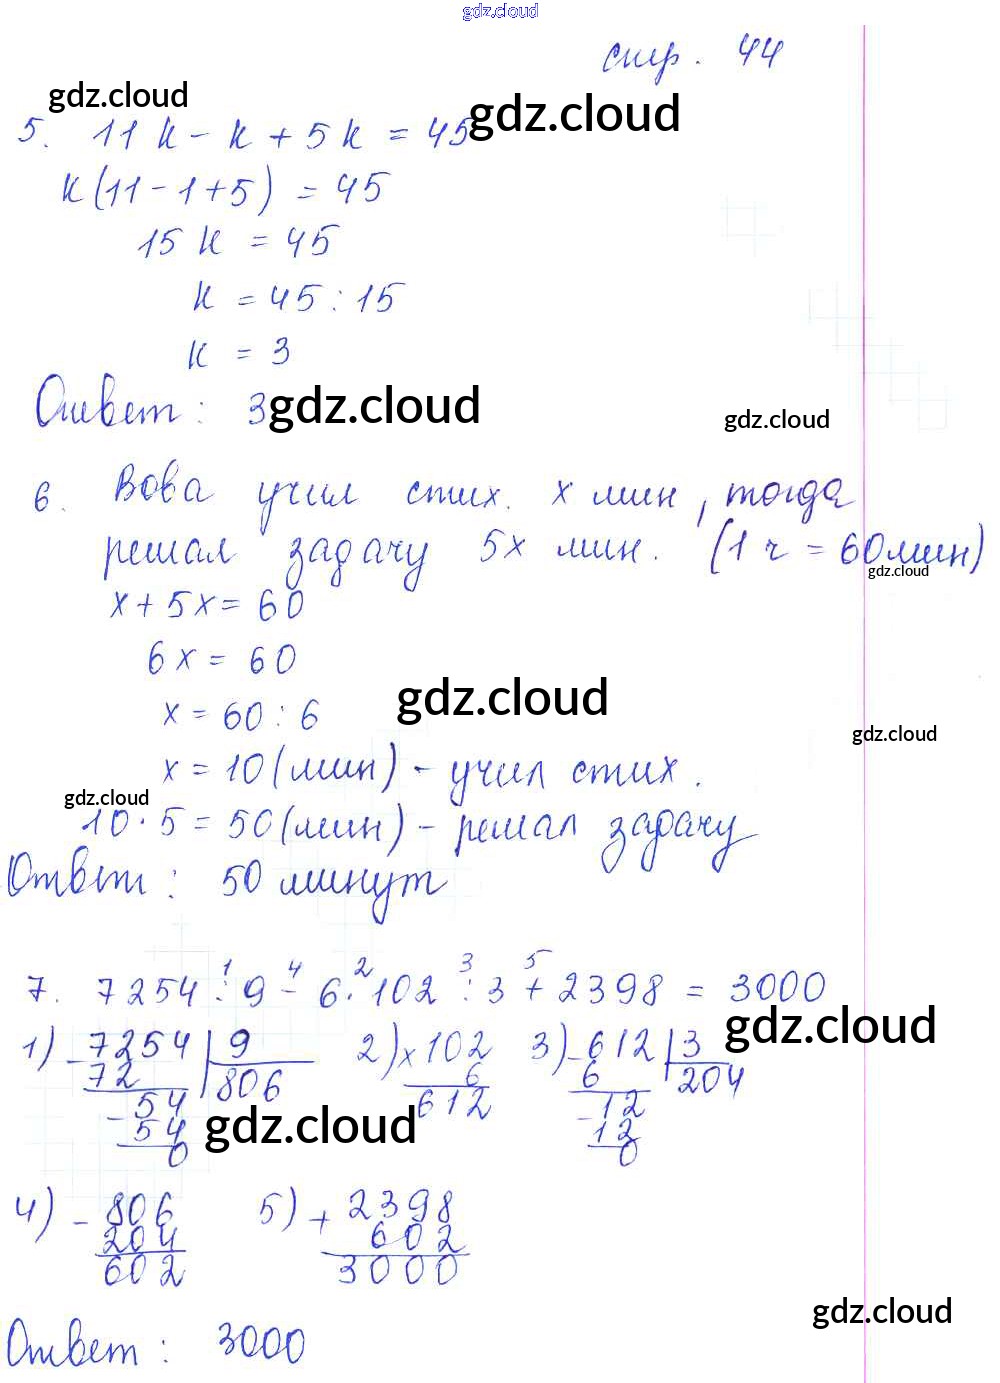 gdz.cloud
стр. 44
gdz.cloud
5. 11k - k + 5k = 45 gdz.cloud
k(11 - 1 + 5) = 45
15k = 45
k = 45 : 15
k = 3
Ответ: 3 gdz.cloud
gdz.cloud
6. Вова учил стих. x мин, тогда
решал задачу 5x мин. (1 ч = 60 мин)
gdz.cloud
x + 5x = 60
6x = 60
x = 60 : 6
gdz.cloud
gdz.cloud
x = 10 (мин) - учил стих.
gdz.cloud
10 · 5 = 50 (мин) - решал задачу
Ответ: 50 минут
1 4 2 3 5
7. 7254 : 9 - 6 · 102 : 3 + 2398 = 3000
gdz.cloud
1) - 7254 | 9 2) x 102 3) - 612 | 3
72 806 6 6 204
- 54 612 - 12
54 12
0 0
gdz.cloud
4) - 806 5) + 2398
204 602
602 3000
gdz.cloud
Ответ: 3000